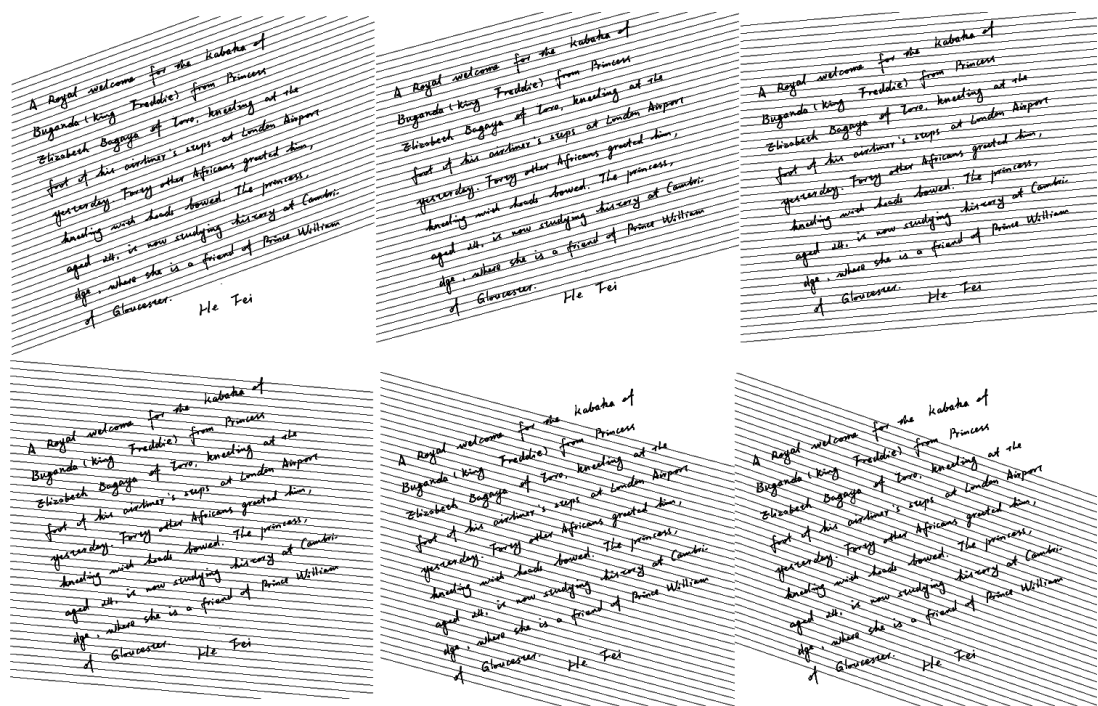 A Royal welcome for the Kabaka of
Buganda (King Freddie) from Princess
Elizabeth Bagaya of Toro, kneeling at the
foot of his airliner's steps at London Airport
yesterday. Forty other Africans greeted him,
kneeling with heads bowed. The princess,
aged 24, is now studying history at Cambri-
dge, where she is a friend of Prince William
of Gloucester.
He Fei
A Royal welcome for the Kabaka of
Buganda (King Freddie) from Princess
Elizabeth Bagaya of Toro, kneeling at the
foot of his airliner's steps at London Airport
yesterday. Forty other Africans greeted him,
kneeling with heads bowed. The princess,
aged 24, is now studying history at Cambri-
dge, where she is a friend of Prince William
of Gloucester.
He Fei
A Royal welcome for the Kabaka of
Buganda (King Freddie) from Princess
Elizabeth Bagaya of Toro, kneeling at the
foot of his airliner's steps at London Airport
yesterday. Forty other Africans greeted him,
kneeling with heads bowed. The princess,
aged 24, is now studying history at Cambri-
dge, where she is a friend of Prince William
of Gloucester.
He Fei
A Royal welcome for the Kabaka of
Buganda (King Freddie) from Princess
Elizabeth Bagaya of Toro, kneeling at the
foot of his airliner's steps at London Airport
yesterday. Forty other Africans greeted him,
kneeling with heads bowed. The princess,
aged 24, is now studying history at Cambri-
dge, where she is a friend of Prince William
of Gloucester.
He Fei
A Royal welcome for the Kabaka of
Buganda (King Freddie) from Princess
Elizabeth Bagaya of Toro, kneeling at the
foot of his airliner's steps at London Airport
yesterday. Forty other Africans greeted him,
kneeling with heads bowed. The princess,
aged 24, is now studying history at Cambri-
dge, where she is a friend of Prince William
of Gloucester.
He Fei
A Royal welcome for the Kabaka of
Buganda (King Freddie) from Princess
Elizabeth Bagaya of Toro, kneeling at the
foot of his airliner's steps at London Airport
yesterday. Forty other Africans greeted him,
kneeling with heads bowed. The princess,
aged 24, is now studying history at Cambri-
dge, where she is a friend of Prince William
of Gloucester.
He Fei